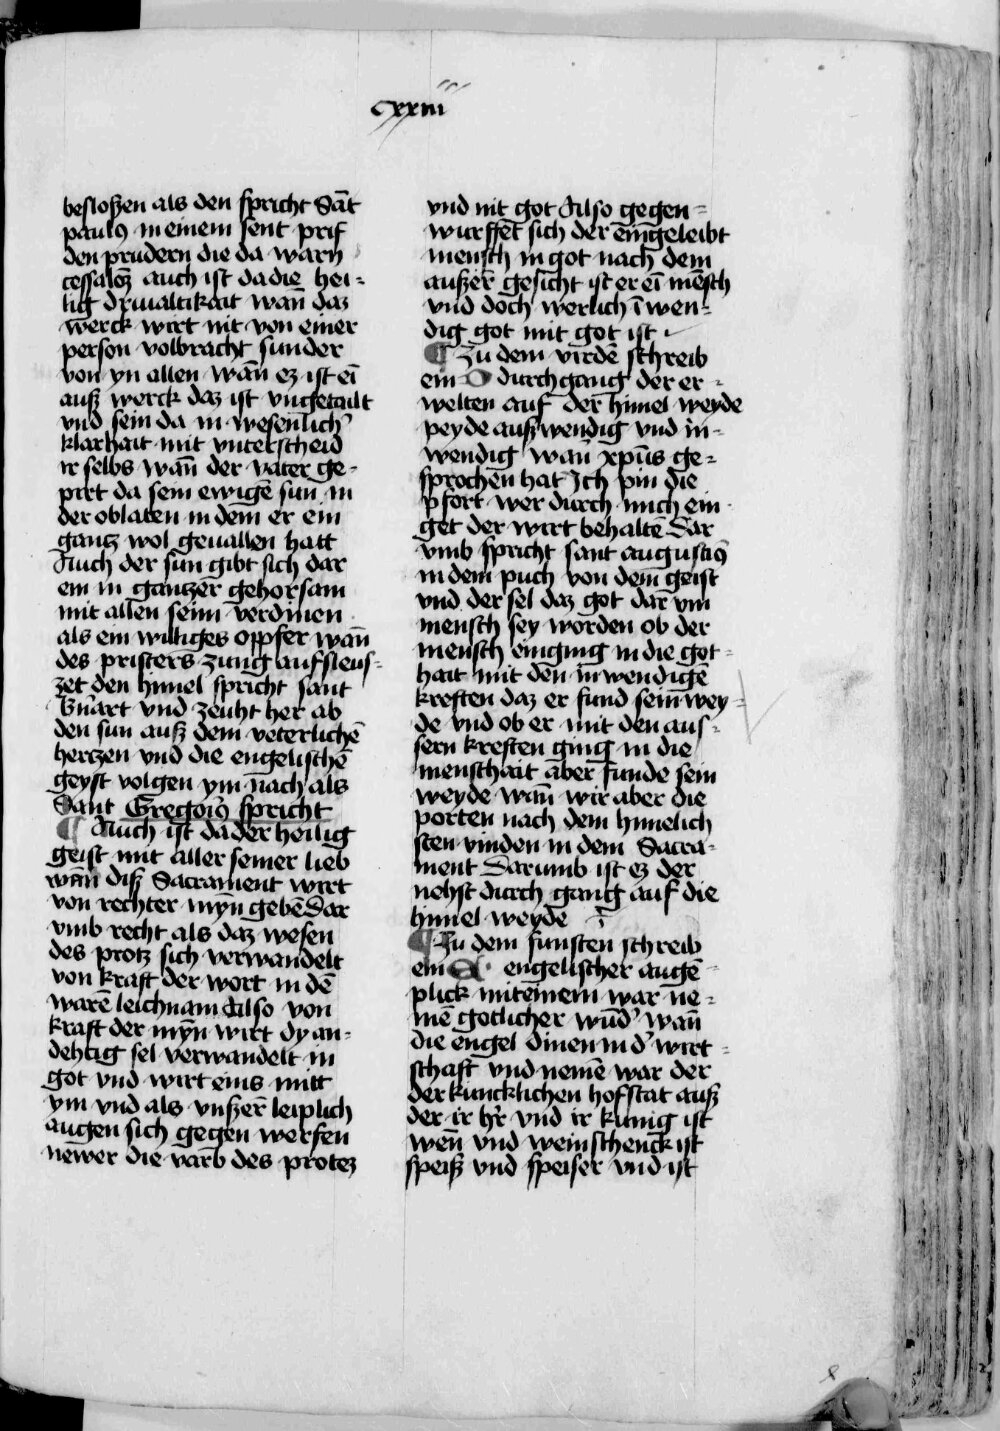 cxxiii
besloßen als den spricht Sāt
paulꝰ in einem sent prif
den prudern die da warn
tessaloꝫ auch ist da die hei-
lig driualtikait wan̄ daz
werck wirt nit von einer
person volbracht sunder
von yn allen wan̄ eꝫ ist eī
auß werck daz ist vngetailt
vnd sein da in wesenlichꝰ
klarhait mit vnterscheid
ir selbs wan̄ der vater ge-
pirt da sein ewigē sun in
der oblaten in dem er ein
gantz wol geuallen hatt
Auch der sun gibt sich dar
ein in gantzer gehorsam
mit allen seinn verdinen
als ein williges opfer wan̄
des pristers zung aufsleus-
zet den himel spricht sant
Bn̄art vnd zeuht her ab
den sun auß dem veterlichē
hertzen vnd die engelischē
geyst volgen ym nach als
Sant Gregoriꝰ spricht
¶ Auch ist da der heilig
geist mit aller seiner lieb
wan̄ diß Sacrament wirt
von rechter myn gebē Dar
vmb recht als daz wesen
des protz sich verwandelt
von kraft der wort in dē
warē leichnam Also von
kraft der myn̄ wirt dy an-
dehtig sel verwandelt in
got vnd wirt eins mitt
ym vnd als vnßer leiplich
augen sich gegen werfen
newer die varb des protez
vnd nit got Also gegen-
wurffet sich der eingeleibt
mensch in got nach dem
außer gesicht ist er eī mēsch
vnd doch werlich ī wen-
dig got mit got ist
¶ Zu dem virdē schreib
ein O durchgang der er-
welten auf der himel weyde
peyde außwendig vnd in-
wendig wan̄ xp̄us ge-
sprochen hat Ich pin die
pfort wer durch mich ein
get der wirt behaltē Dar
vmb spricht sant augustiꝰ
in dem puch von dem geist
vnd der sel daz got dar vm
mensch sey worden ob der
mensch einging in die got-
hait mit den inwendigē
kreften daz er fund sein wey-
de vnd ob er mit den aus-
sern kreften ging in die
menschait aber funde sein
weyde wan̄ wir aber die
porten nach dem himelich
sten vinden in dem Sacra-
ment Darumb ist eꝫ der
nehst durch gang auf die
himel weyde
¶ Zu dem funften schreib
ein A engelischer augē-
plick mit einem war ne-
mē gotlicher wūdꝰ wan̄
die engel dinen in dꝰ wirt-
schaft vnd nemē war der
der kuncklichen hofstat auß
der ir hꝰr vnd ir kunig ist
wen̄ vnd weinschenck ist
speiß vnd speiser vnd ist